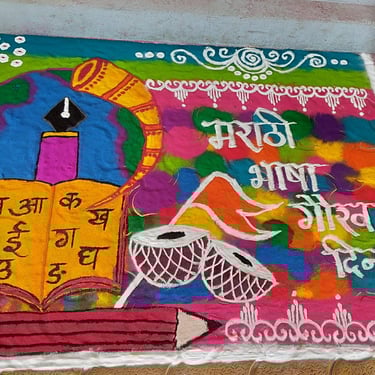 आ क ख
ई ग
उ ङ घ
मराठी
भाषा
गौरव
दिन